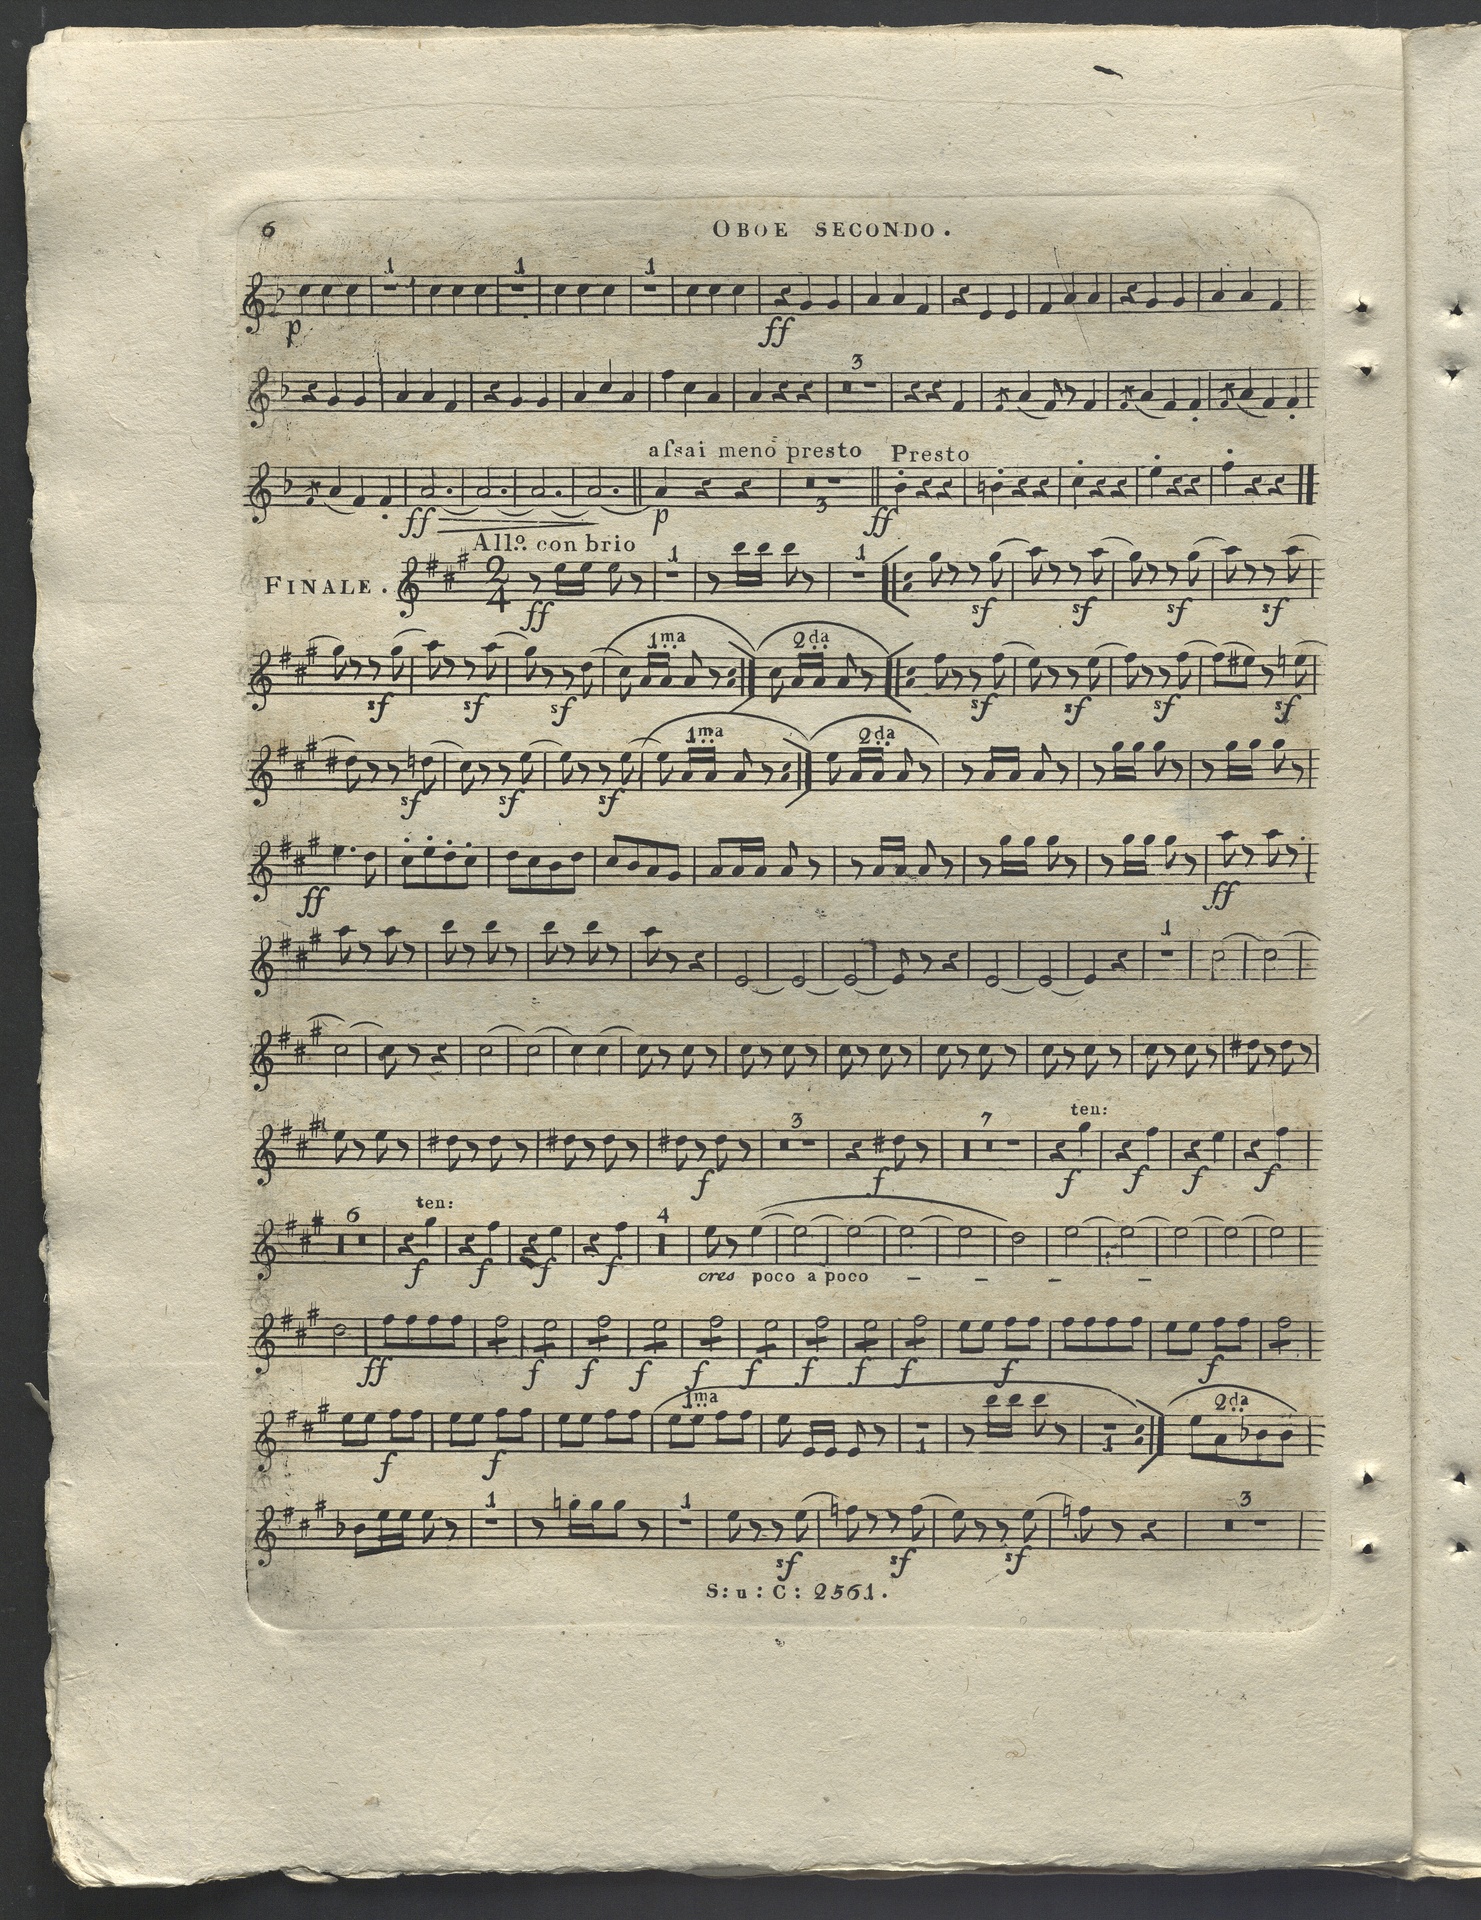 6
OBOE SECONDO.
1 1 1
p ff
3
aſsai meno presto Presto
ff p 3 ff
All.o con brio
FINALE. 2/4 1 1
ff sf sf sf sf
1ma 2da
sf sf sf sf sf sf sf
1ma 2da
sf sf sf
ff ff
1
ten:
3 7
f f f f f f
ten:
6 4
f f f f
cres poco a poco
ff f f f f f f f f f f
1ma 2da
f f 1 1
1 1 3
sf sf sf
S:u:C: 2561.